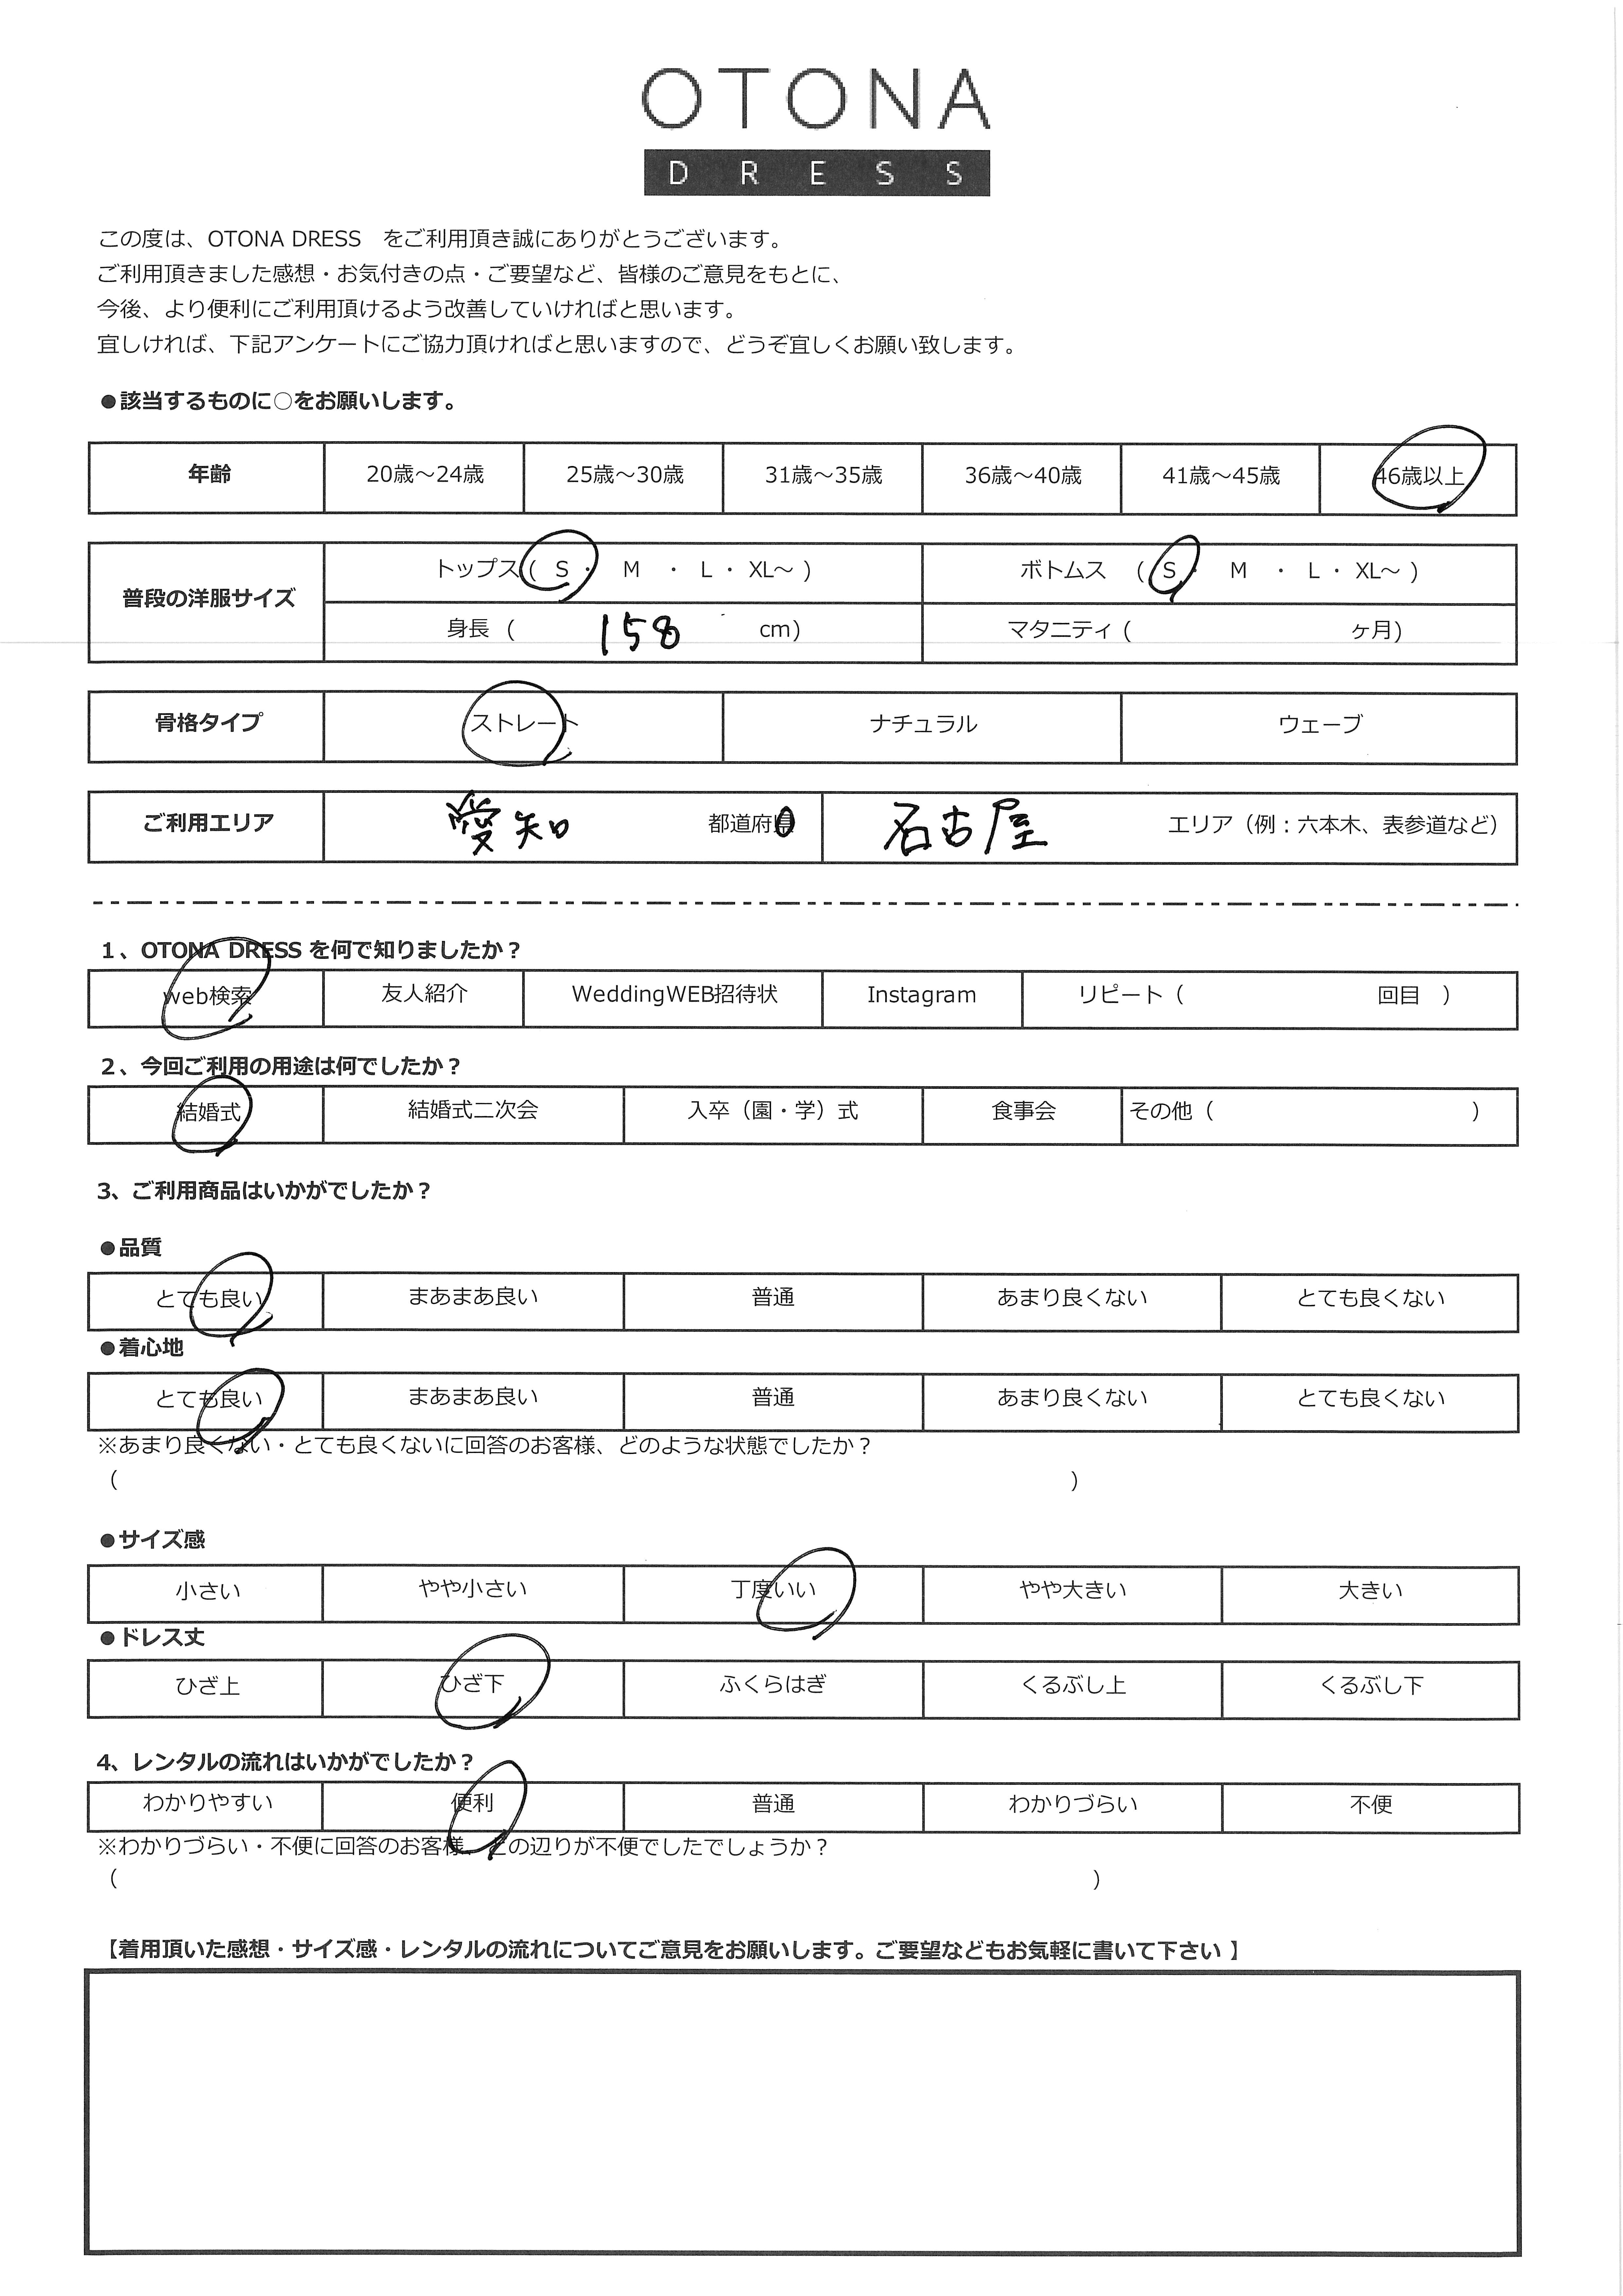 OTONA
DRESS
この度は、OTONA DRESS をご利用頂き誠にありがとうございます。
ご利用頂きました感想・お気付きの点・ご要望など、皆様のご意見をもとに、
今後、より便利にご利用頂けるよう改善していければと思います。
宜しければ、下記アンケートにご協力頂ければと思いますので、どうぞ宜しくお願い致します。
●該当するものに○をお願いします。
年齢 20歳～24歳 25歳～30歳 31歳～35歳 36歳～40歳 41歳～45歳 46歳以上
普段の洋服サイズ トップス( S ・ M ・ L ・ XL～ ) ボトムス ( S ・ M ・ L ・ XL～ )
身長 ( 158 cm) マタニティ ( ヶ月)
骨格タイプ ストレート ナチュラル ウェーブ
ご利用エリア 愛知 都道府県 名古屋 エリア（例：六本木、表参道など）
1、OTONA DRESS を何で知りましたか？
web検索 友人紹介 WeddingWEB招待状 Instagram リピート（ 回目 ）
2、今回ご利用の用途は何でしたか？
結婚式 結婚式二次会 入卒（園・学）式 食事会 その他（ ）
3、ご利用商品はいかがでしたか？
●品質
とても良い まあまあ良い 普通 あまり良くない とても良くない
●着心地
とても良い まあまあ良い 普通 あまり良くない とても良くない
※あまり良くない・とても良くないに回答のお客様、どのような状態でしたか？
（ ）
●サイズ感
小さい やや小さい 丁度いい やや大きい 大きい
●ドレス丈
ひざ上 ひざ下 ふくらはぎ くるぶし上 くるぶし下
4、レンタルの流れはいかがでしたか？
わかりやすい 便利 普通 わかりづらい 不便
※わかりづらい・不便に回答のお客様、どの辺りが不便でしたでしょうか？
（ ）
【着用頂いた感想・サイズ感・レンタルの流れについてご意見をお願いします。ご要望などもお気軽に書いて下さい 】